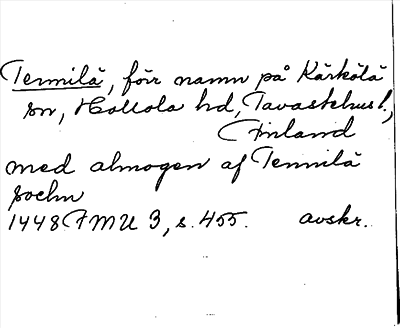 Tennilä, förr namn på Kärkölä
sn, Hollola hd, Tavastehus l.,
Finland
med almogen af Tennilä
sochn
1448 FMU 3, s. 455. avskr.